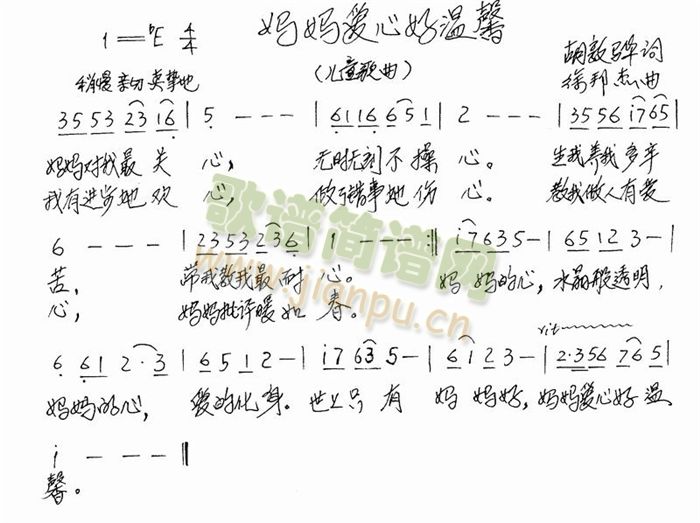 妈妈爱心好温馨
1=♭E 4/4
(儿童歌曲)
胡敦骅词
稍慢 亲切 真挚地
徐邦杰曲
3553 23 16 | 5 - - - | 6116 651 | 2 - - - | 3556 i765 |
妈妈对我最关心, 无时无刻不操心。 生我养我多辛
我有进步她欢心, 做了错事她伤心。 教我做人有爱
6 - - - | 2353 236 | 1 - - - :‖ i7635- | 6512 3- |
苦, 带我教我最耐心。 妈妈的心, 水晶般透明,
心, 妈妈批评暖如春。
歌谱简谱网
www.jianpu.cn
rit
6 61 2·3 | 6512- | i7 63 5- | 6123- | 2·356 765 |
妈妈的心, 爱的化身。世上只有妈妈好, 妈妈爱心好温
i - - - ‖
馨。